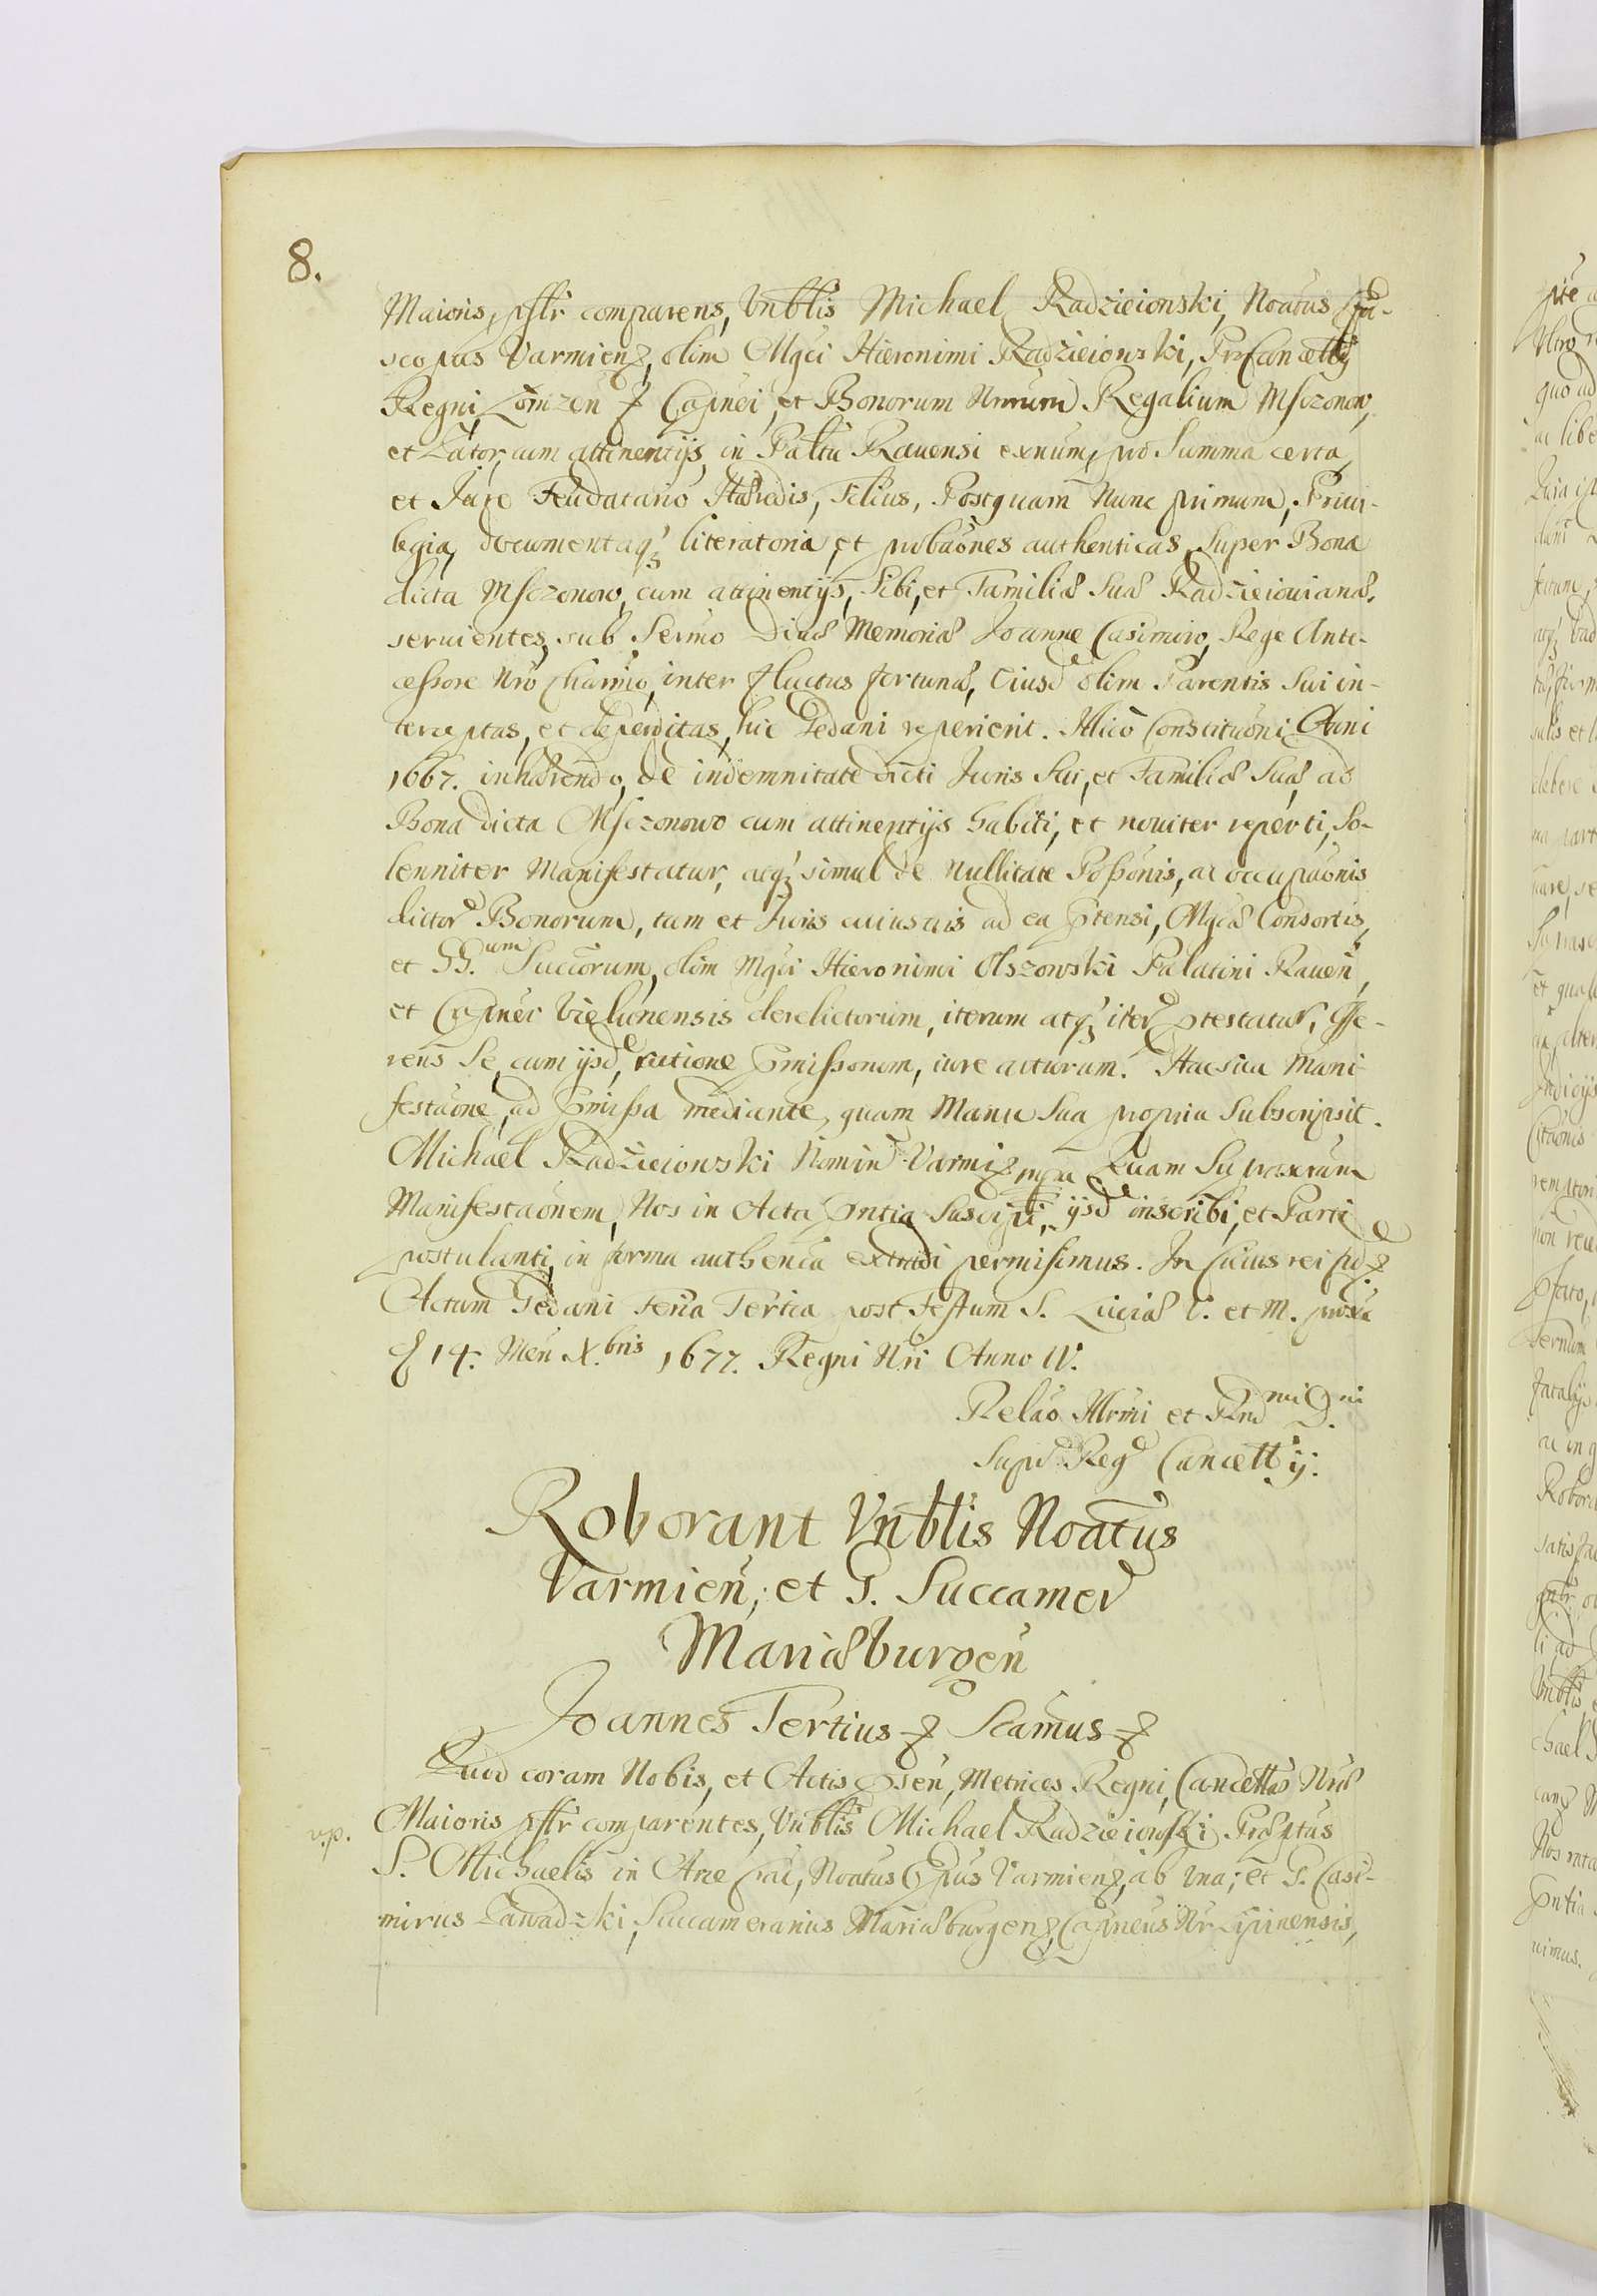 8.
Maioris, psltr comparens, Vnbtlis Michael Radzieionski, Noatus Epi-
scopus Varmien, olim Mgci Hieronimi Radzieionski, ProCancettij
Regni, Lomzen Capnei, et Bonorum Nrorum Regalium Mszonow,
et Zator, cum attinentijs, in Paltu Rauensi exnum, pro Summa certa,
et Jure Feudatario Hæredis, Filius, Postquam Nunc primum, Priui-
legia, documentaqz literatoria, et probaones authenticas Super Bona
dicta Msczonow, cum attinentijs, Sibi, et Familiæ Suæ Radzieiouianæ,
seruientes, sub Sermo Diuæ Memoriæ Joanne Casimiro, Rege Ante-
cessore Nro Charmo, inter fluctus fortunæ, Eiusd olim Parentis Sui in-
terceptas, et deperditas, hic Gedani reperierit. Illico Constituoni Anni
1667. inhærendo, de indemnitate dicti Juris Sui, et Familiæ Suæ, ad
Bona dicta Msczonowo cum attinentijs habiti, et nouiter reperti, So-
lenniter Manifestatur, atqz simul de Nullitate Possonis, ac occupaonis
dictor Bonorum, tam et Juris cuiusuis ad ea ptensi, Mgcæ Consortis,
et SS.um Succorum, olim Mgci Hieronimi Olszowski Palatini Rauen,
et Capnei Vielunensis derelictorum, iterum atqz iter ptestatur, offe-
rens Se, cum ijsd, ratione pmissorum, iure acturum. Hac sua Mani-
festaone, ad pmissa mediante, quam Manu Sua propria Subscripsit.
Michael Radzieionski Nomin Varmi mpa Quam Suprascram
Manifestaonem, Nos in Acta pntia Suscipi, ijsd inscribi, et Parti
postulanti, in forma authenca extradi permisimus. In Cuius rei fid
Actum Gedani Feria Tertia post Festum S. Luciæ V. et M. proxa
14. Men X.bris 1677. Regni Nri Anno IV.
Relao Illrmi et Rnd mi D ni
Supr Reg Cancett ij.
Roborant Vnbtlis Noatus
Varmien, et G. Succamer
Mariæburgen
Joannes Tertius Scamus
Quod coram Nobis, et Actis psen, Metrices Regni, Cancettæ Nræ
v.p. Maioris psltr comparentes, Vnbtlis Michael Radzieiowski Præptus
S. Michaelis in Arce Crac, Noatus Eppus Varmien, ab Vna; et G. Casi-
mirus Zawadzki, Succameranius Mariæburgen, Capneus Nr Lipinensis,